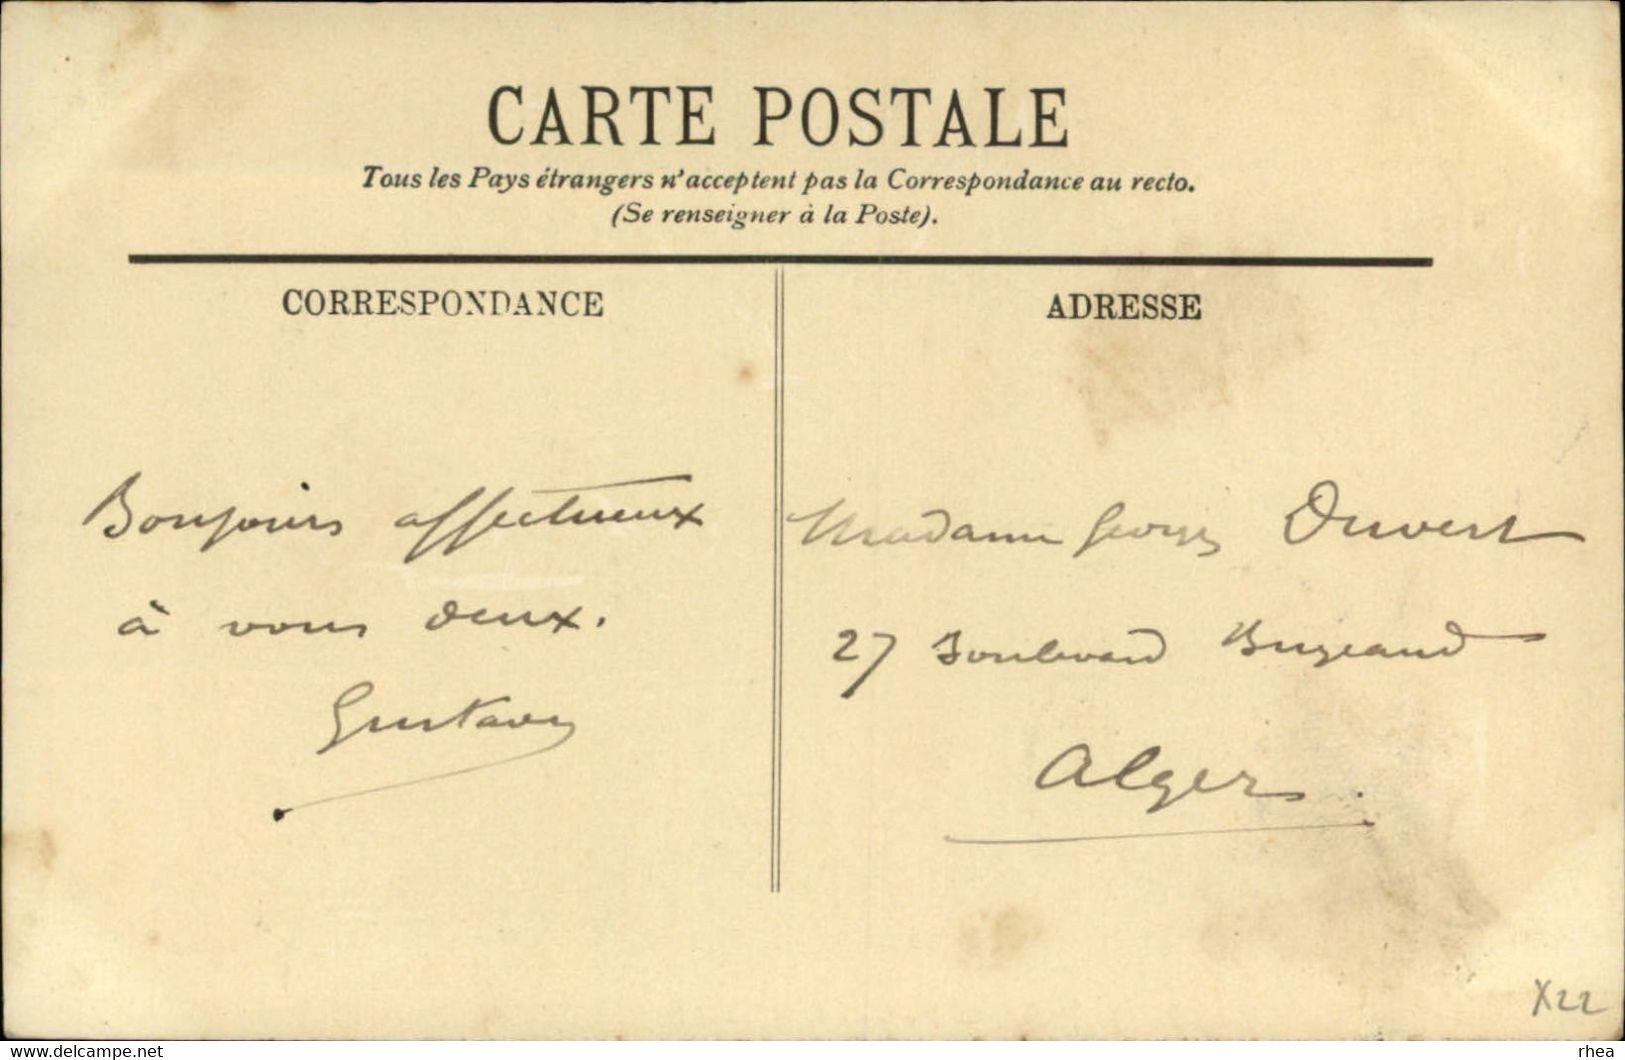 CARTE POSTALE
Tous les Pays étrangers n'acceptent pas la Correspondance au recto.
(Se renseigner à la Poste).
CORRESPONDANCE
Bonjours affectueux
à vous deux.
Gustave
ADRESSE
Madame Georges Duvert
27 Boulevard Bugeaud
Alger.
X22
delcampe.net
rhea